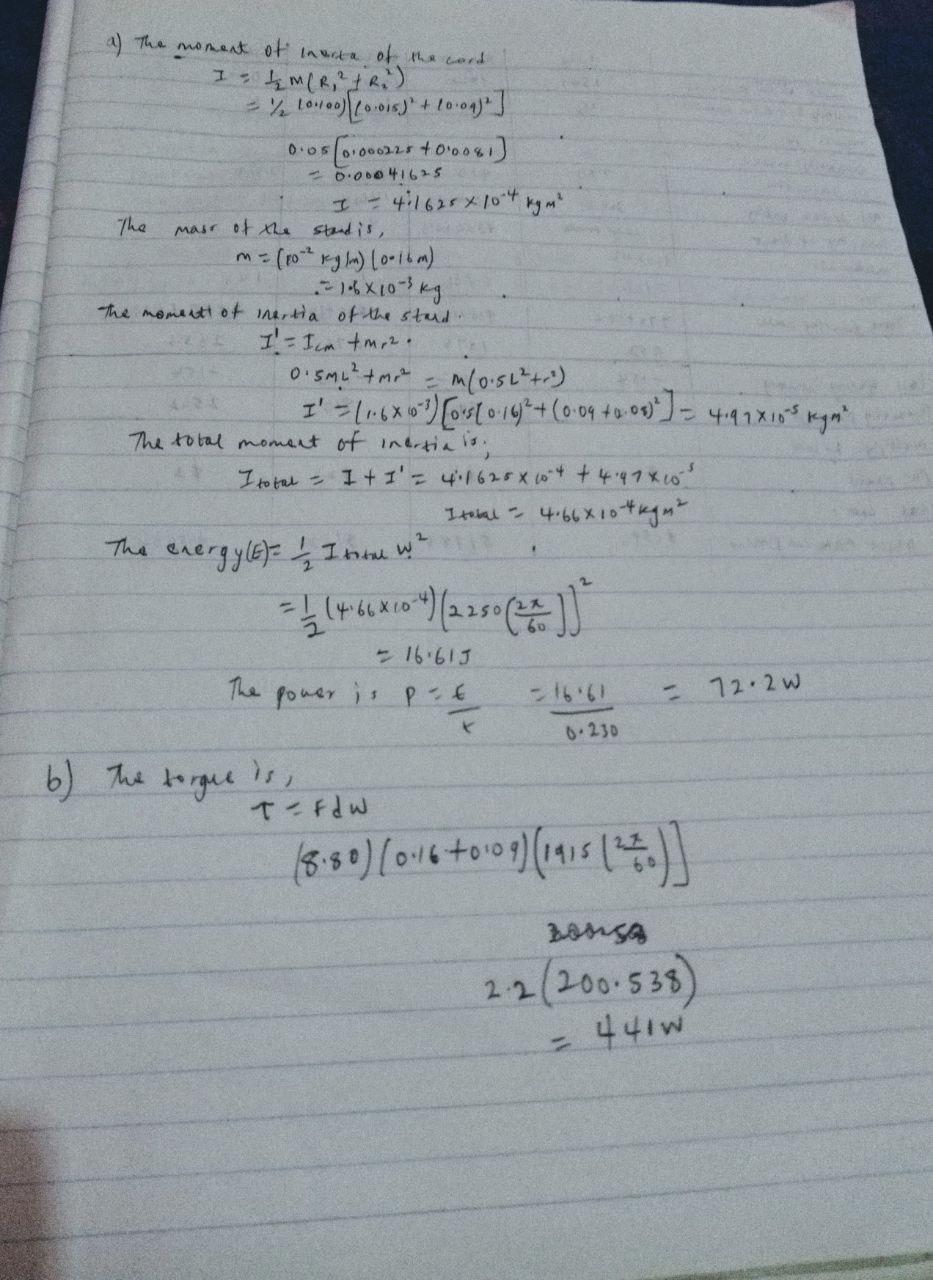 a) The moment of inerta of the cord
I = ½ M(R₁² + R₂²)
= ½ (0.100)[(0.015)² + (0.09)²]
0.05[0.000225 + 0.0081]
= 0.00041625
I = 4.1625 × 10⁻⁴ kgm²
The mass of the stand is,
m = (10⁻² kg/m)(0.16m)
= 1.6 × 10⁻³ kg
The moment of inertia of the stand.
I' = Icm + mr².
0.5ML² + mr² = M(0.5L² + r²)
I' = (1.6 × 10⁻³)[0.5(0.16)² + (0.09 + 0.08)²] = 4.97 × 10⁻⁵ kgm²
The total moment of inertia is;
I total = I + I' = 4.1625 × 10⁻⁴ + 4.97 × 10⁻⁵
I total = 4.66 × 10⁻⁴ kgm²
The energy(E) = ½ I total w²
= ½ (4.66 × 10⁻⁴)(2250(2π/60)]²
= 16.61J
The power is P = E/t = 16.61/0.230 = 72.2W
b) The torque is,
T = Fdw
(8.80)(0.16 + 0.09)(1915(2π/60)]
2.2(200.538)
= 441W